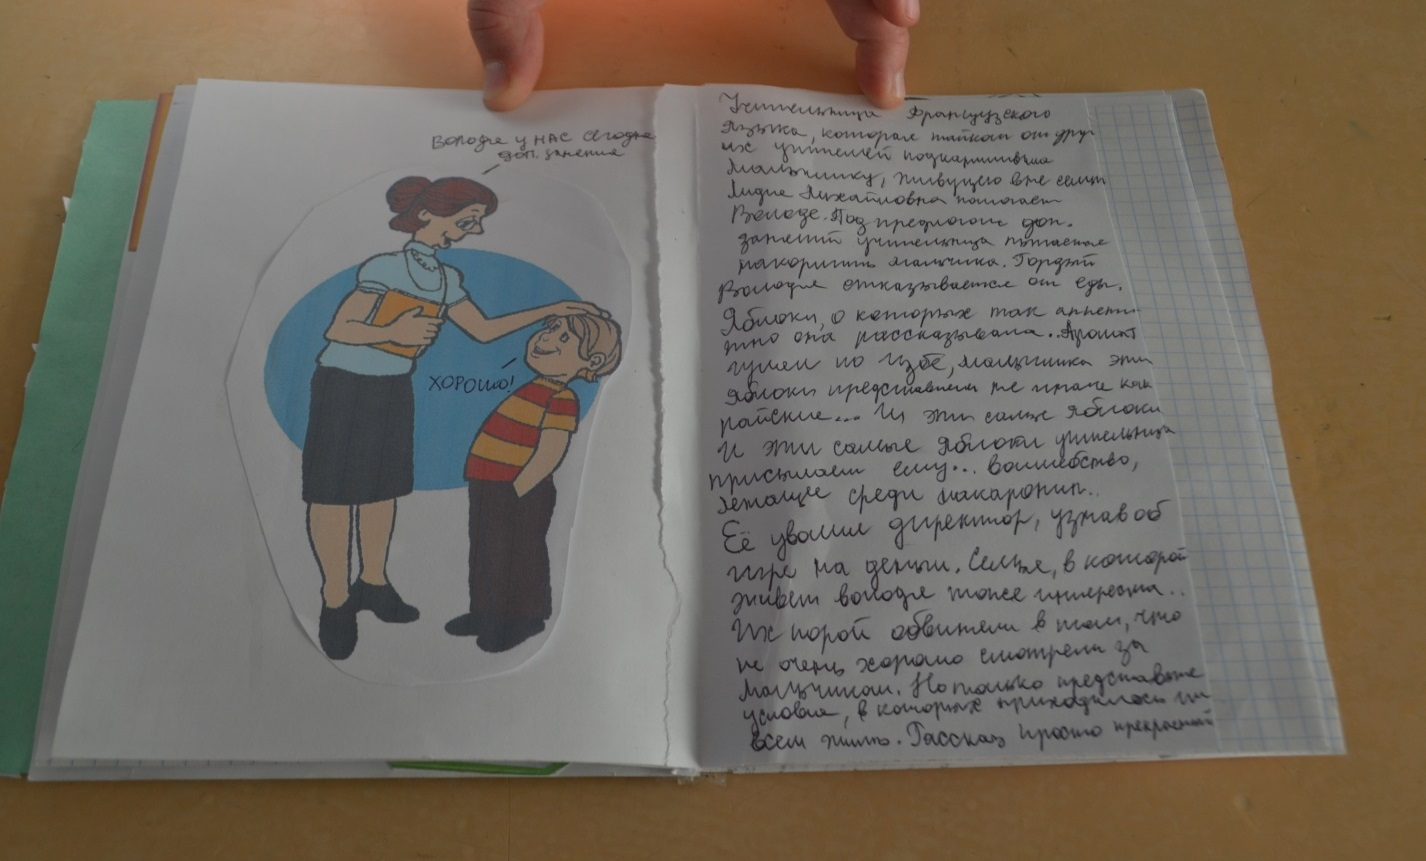 Володя у нас сегодня
доп. занятия
ХОРОШО!
Учительница французского
языка, которая тайком от друг
их учителей подкармливала
мальчишку, живущего вне семьи
Лидия Михайловна помогает
Володе. Под предлогом доп.
занятий учительница пытается
накормить мальчика. Гордый
Володя отказывается от еды.
Яблоки, о которых так аппети
тно она рассказывала.. Аромат
гулял по избе, мальчишка эти
яблоки представлял не иначе как
райские... И эти самые яблоки
И эти самые яблоки учительница
присылает ему... волшебство,
лежащее среди макаронин..
Её уволил директор, узнав об
игре на деньги. Семья, в которой
живёт володя тоже интересна..
Их порой обвиняли в том, что
не очень хорошо смотрели за
мальчиком. Но только представьте
условия, в которых приходилось им
всем жить. Рассказ просто прекрасный